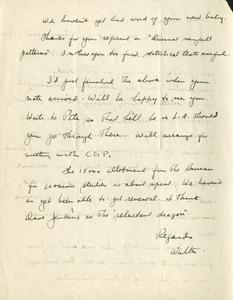 We haven't yet had word of your new baby.
Thanks for your reprint on "Diurnal rainfall
patterns". I notice you too find statistical tests useful.
I'd just finished the above when your
note arrived. Will be happy to see you.
Write to Pete so that he'll be in L.A. should
you go through there. Will arrange for
meeting with
The 15000 allotment from the Bureau
for erosion studies is about spent. We haven't
as yet been able to get renewal. I think
Dave Jenkins is the "reluctant dragon".
Regards
Walter